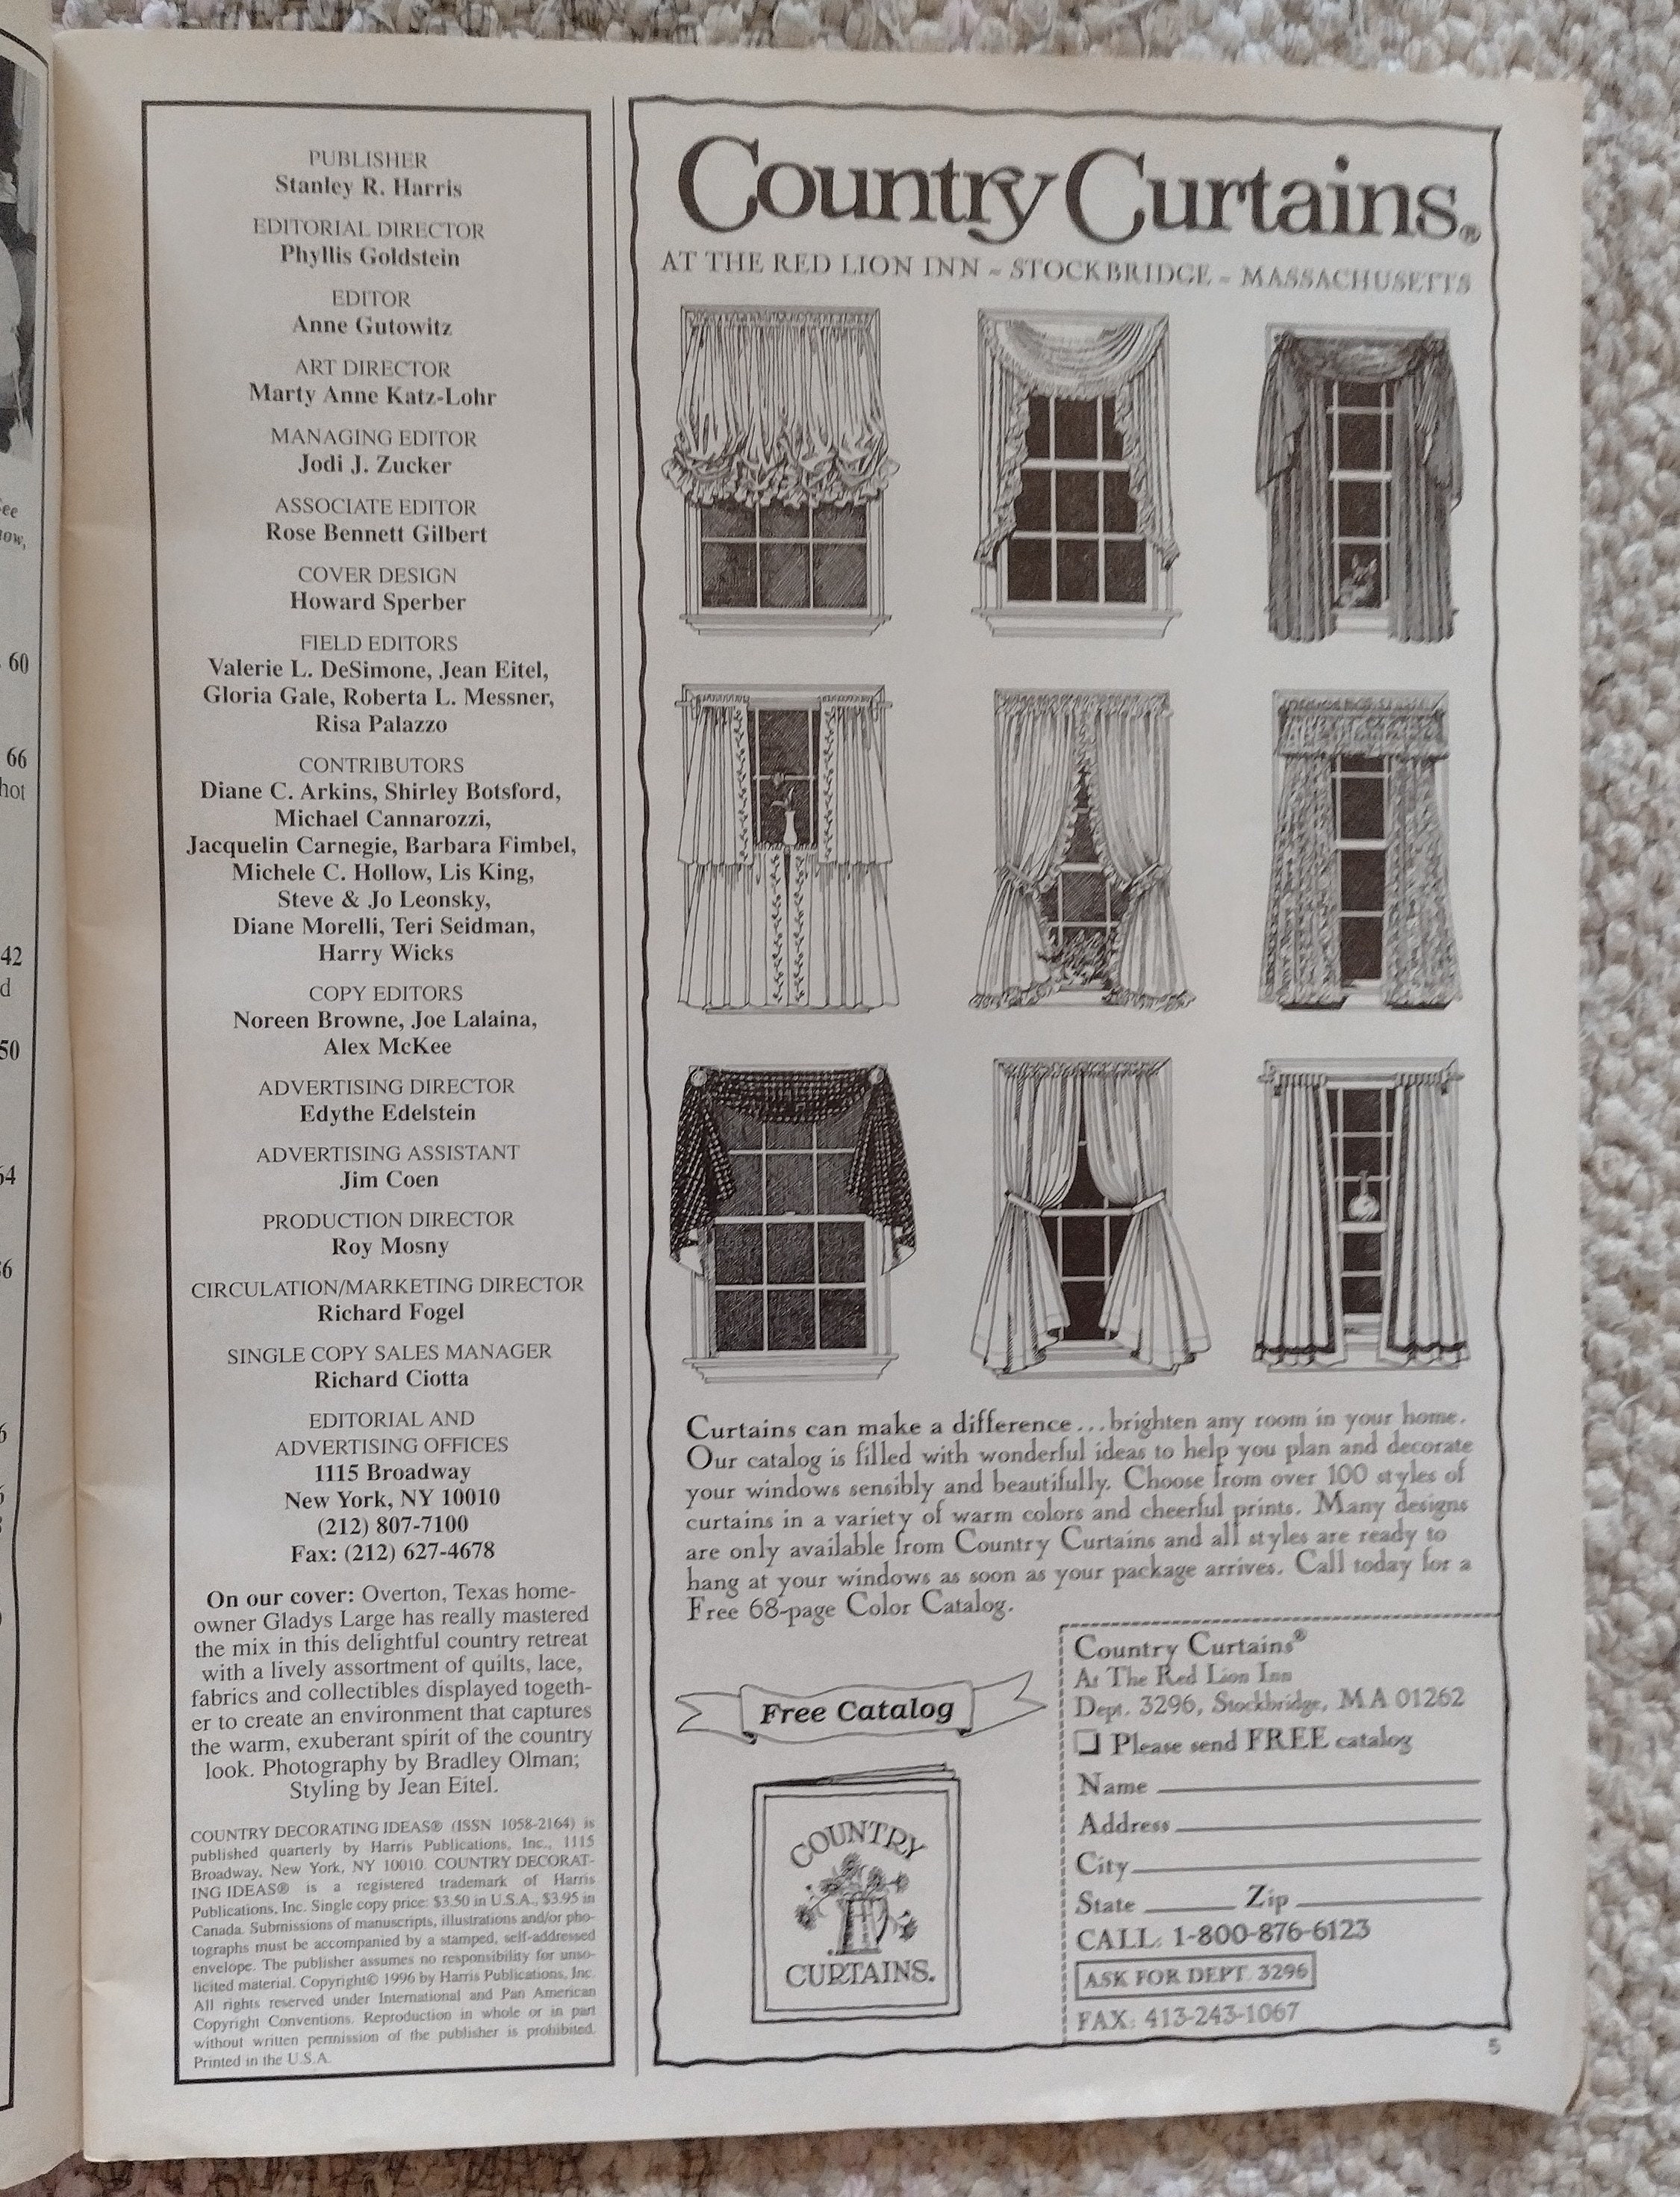 ee
now,
60
66
hot
42
d
50
64
6
PUBLISHER
Stanley R. Harris
EDITORIAL DIRECTOR
Phyllis Goldstein
EDITOR
Anne Gutowitz
ART DIRECTOR
Marty Anne Katz-Lohr
MANAGING EDITOR
Jodi J. Zucker
ASSOCIATE EDITOR
Rose Bennett Gilbert
COVER DESIGN
Howard Sperber
FIELD EDITORS
Valerie L. DeSimone, Jean Eitel,
Gloria Gale, Roberta L. Messner,
Risa Palazzo
CONTRIBUTORS
Diane C. Arkins, Shirley Botsford,
Michael Cannarozzi,
Jacquelin Carnegie, Barbara Fimbel,
Michele C. Hollow, Lis King,
Steve & Jo Leonsky,
Diane Morelli, Teri Seidman,
Harry Wicks
COPY EDITORS
Noreen Browne, Joe Lalaina,
Alex McKee
ADVERTISING DIRECTOR
Edythe Edelstein
ADVERTISING ASSISTANT
Jim Coen
PRODUCTION DIRECTOR
Roy Mosny
CIRCULATION/MARKETING DIRECTOR
Richard Fogel
SINGLE COPY SALES MANAGER
Richard Ciotta
EDITORIAL AND
ADVERTISING OFFICES
1115 Broadway
New York, NY 10010
(212) 807-7100
Fax: (212) 627-4678
On our cover: Overton, Texas home-
owner Gladys Large has really mastered
the mix in this delightful country retreat
with a lively assortment of quilts, lace,
fabrics and collectibles displayed togeth-
er to create an environment that captures
the warm, exuberant spirit of the country
look. Photography by Bradley Olman;
Styling by Jean Eitel.
COUNTRY DECORATING IDEAS® (ISSN 1058-2164) is
published quarterly by Harris Publications, Inc., 1115
Broadway, New York, NY 10010. COUNTRY DECORAT-
ING IDEAS® is a registered trademark of Harris
Publications, Inc. Single copy price: $3.50 in U.S.A., $3.95 in
Canada. Submissions of manuscripts, illustrations and/or pho-
tographs must be accompanied by a stamped, self-addressed
envelope. The publisher assumes no responsibility for unso-
licited material. Copyright© 1996 by Harris Publications, Inc.
All rights reserved under International and Pan American
Copyright Conventions. Reproduction in whole or in part
without written permission of the publisher is prohibited.
Printed in the U.S.A.
Country Curtains®
AT THE RED LION INN ~ STOCKBRIDGE ~ MASSACHUSETTS
Curtains can make a difference...brighten any room in your home.
Our catalog is filled with wonderful ideas to help you plan and decorate
your windows sensibly and beautifully. Choose from over 100 styles of
curtains in a variety of warm colors and cheerful prints. Many designs
are only available from Country Curtains and all styles are ready to
hang at your windows as soon as your package arrives. Call today for a
Free 68-page Color Catalog.
Free Catalog
COUNTRY
CURTAINS.
Country Curtains®
At The Red Lion Inn
Dept. 3296, Stockbridge, MA 01262
❏ Please send FREE catalog
Name
Address
City
State Zip
CALL: 1-800-876-6123
ASK FOR DEPT. 3296
FAX: 413-243-1067
5